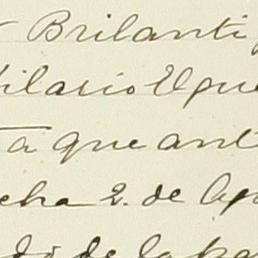 Brilanti
ilario Ugue
a que ant
cha 2. de Ag
do de la pa